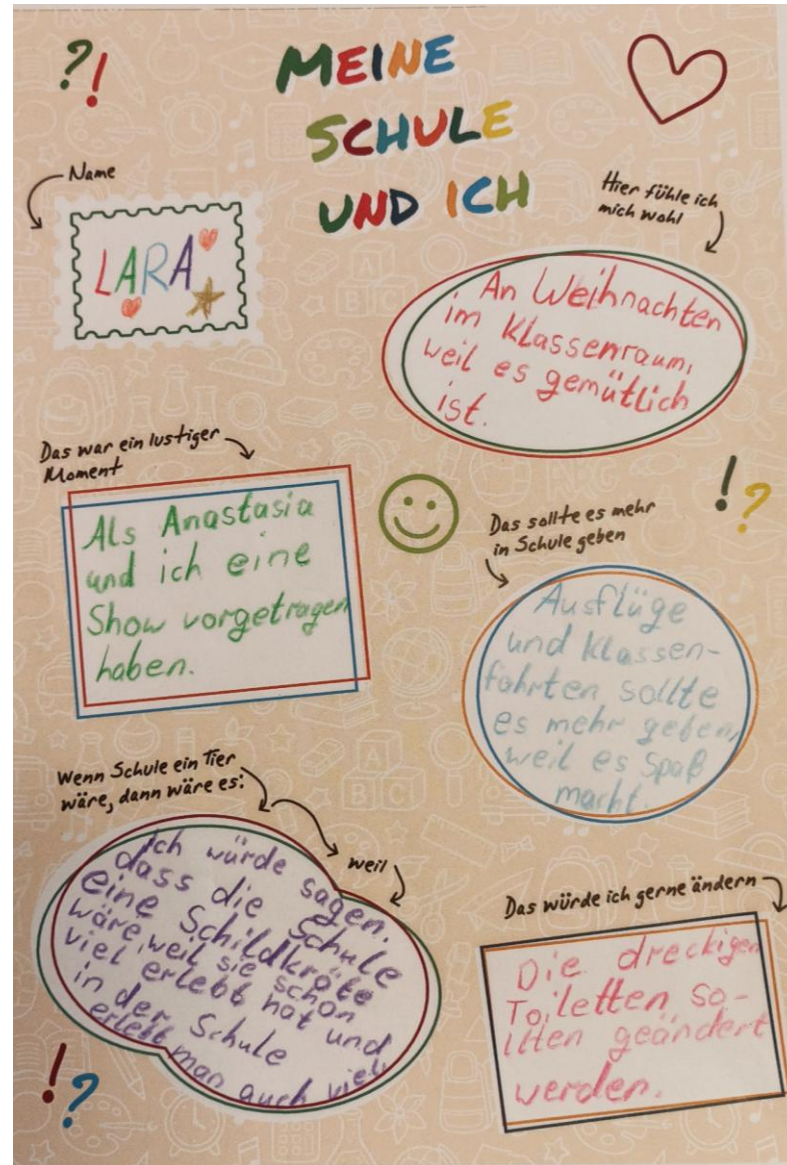 ?!
MEINE
SCHULE
UND ICH
Name
LARA
Hier fühle ich
mich wohl
An Weihnachten
im Klassenraum,
weil es gemütlich
ist.
Das war ein lustiger
Moment
Als Anastasia
und ich eine
Show vorgetragen
haben.
!?
Das sollte es mehr
in Schule geben
Ausflüge
und Klassen-
fahrten sollte
es mehr geben,
weil es Spaß
macht.
Wenn Schule ein Tier
wäre, dann wäre es:
weil
Ich würde sagen.
dass die Schule
eine Schildkröte
wäre, weil sie schon
viel erlebt hat und
in der Schule
erlebt man auch viel.
Das würde ich gerne ändern
Die dreckigen
Toiletten so-
llten geändert
werden.
!?